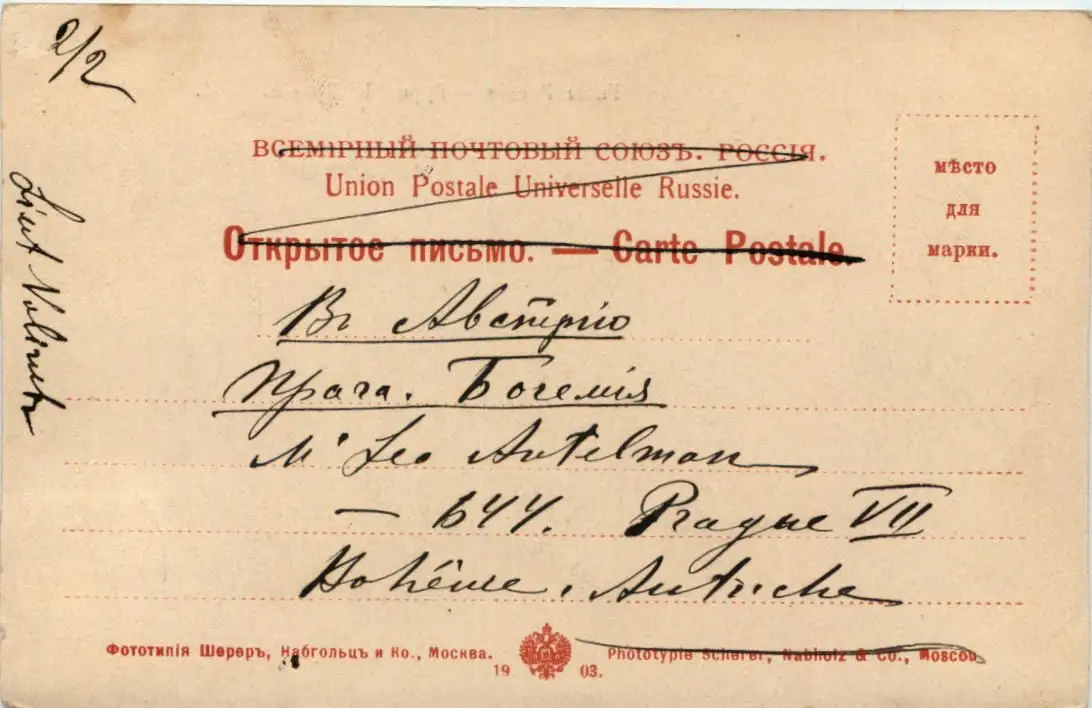 2/2
ВСЕМІРНЫЙ ПОЧТОВЫЙ СОЮЗЪ. РОССІЯ.
Union Postale Universelle Russie.
Открытое письмо. — Carte Postale.
мѣсто
для
марки.
Въ Австрію
Прага. Богемія
Mr Leo Antelman
— 644. Prague VII
Bohême, Autriche
Фототипія Шереръ, Набгольцъ и Ко., Москва.
Phototypie Scherer, Nabholz & Co., Moscou.
19 03.